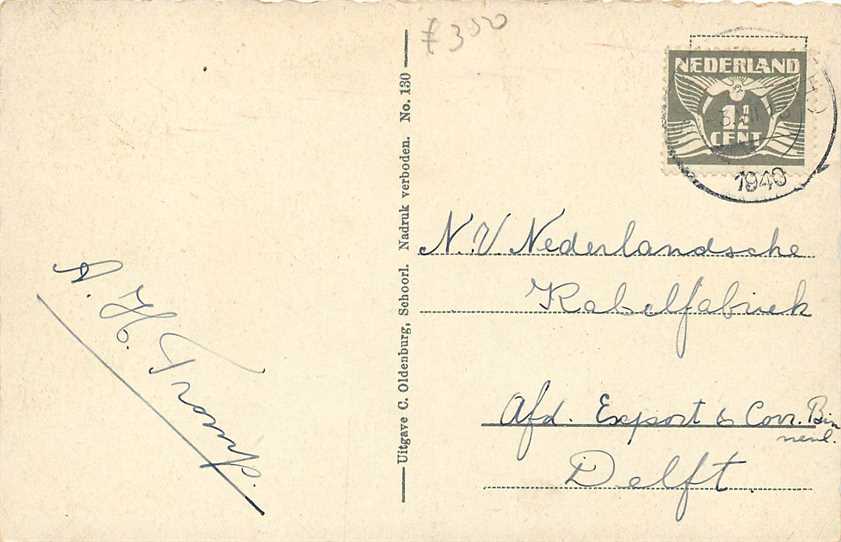 ƒ 3,50
NEDERLAND
1½
CENT
1940
N.V. Nederlandsche
Kabelfabriek
Afd. Export & Corr. Bin
nenl.
Delft
A. H. Tromp.
Uitgave C. Oldenburg, Schoorl. Nadruk verboden. No. 130